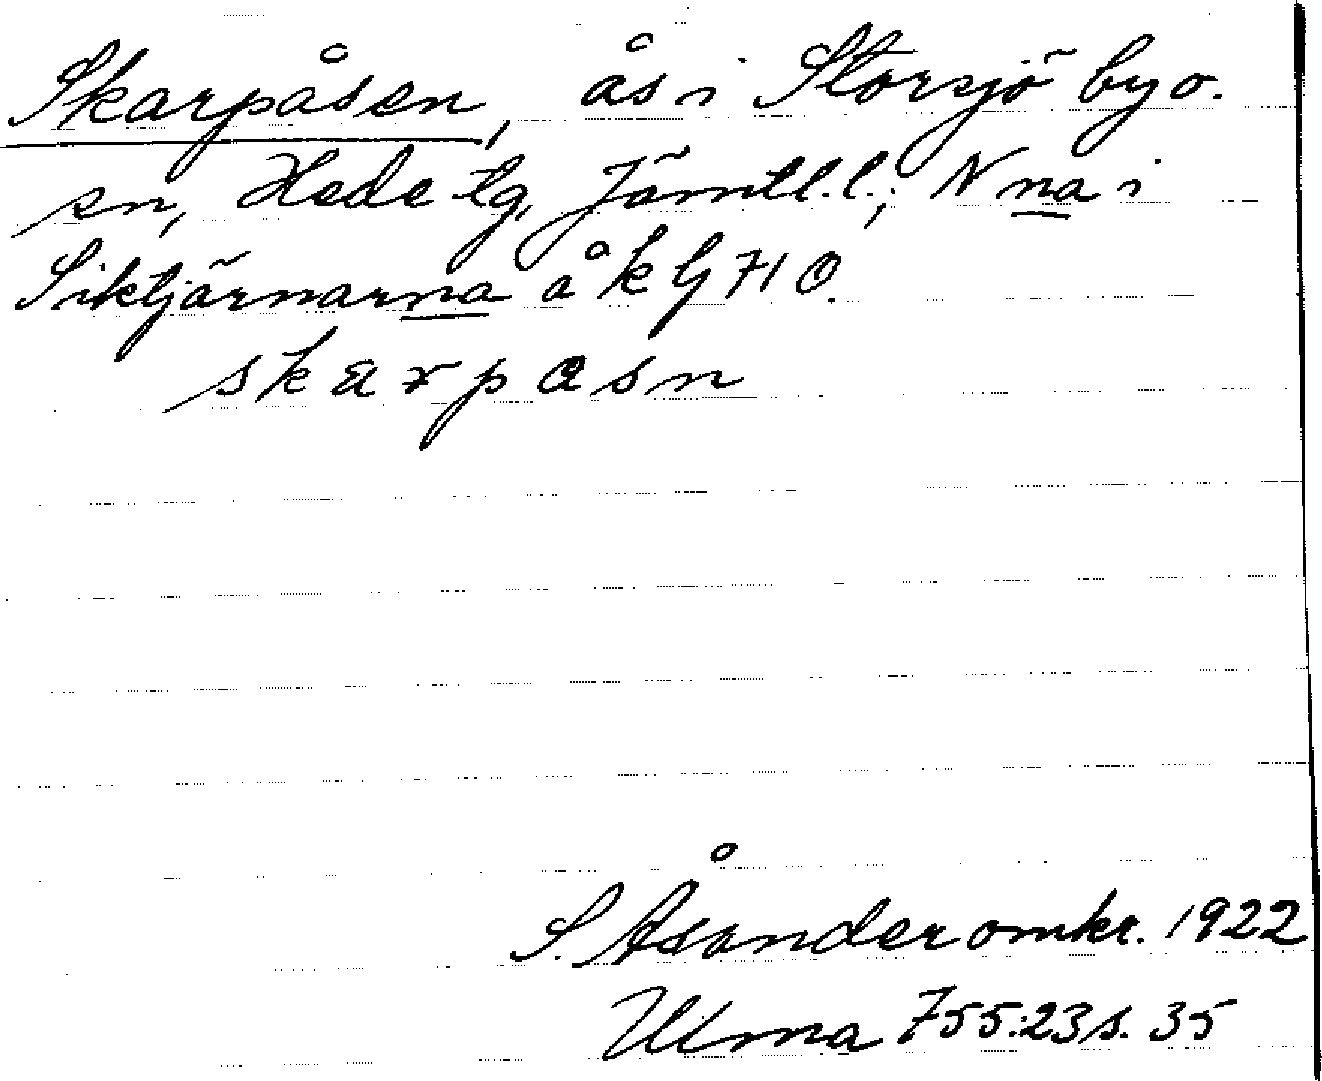 Skarpåsen, ås i Storsjö by o.
sn, Hede tg, Jämtl. l.; N na i
Siktjärnarna å k G 71 O.
skarpasn
S. Åsander omkr. 1922
Ulma 755:23 s. 35